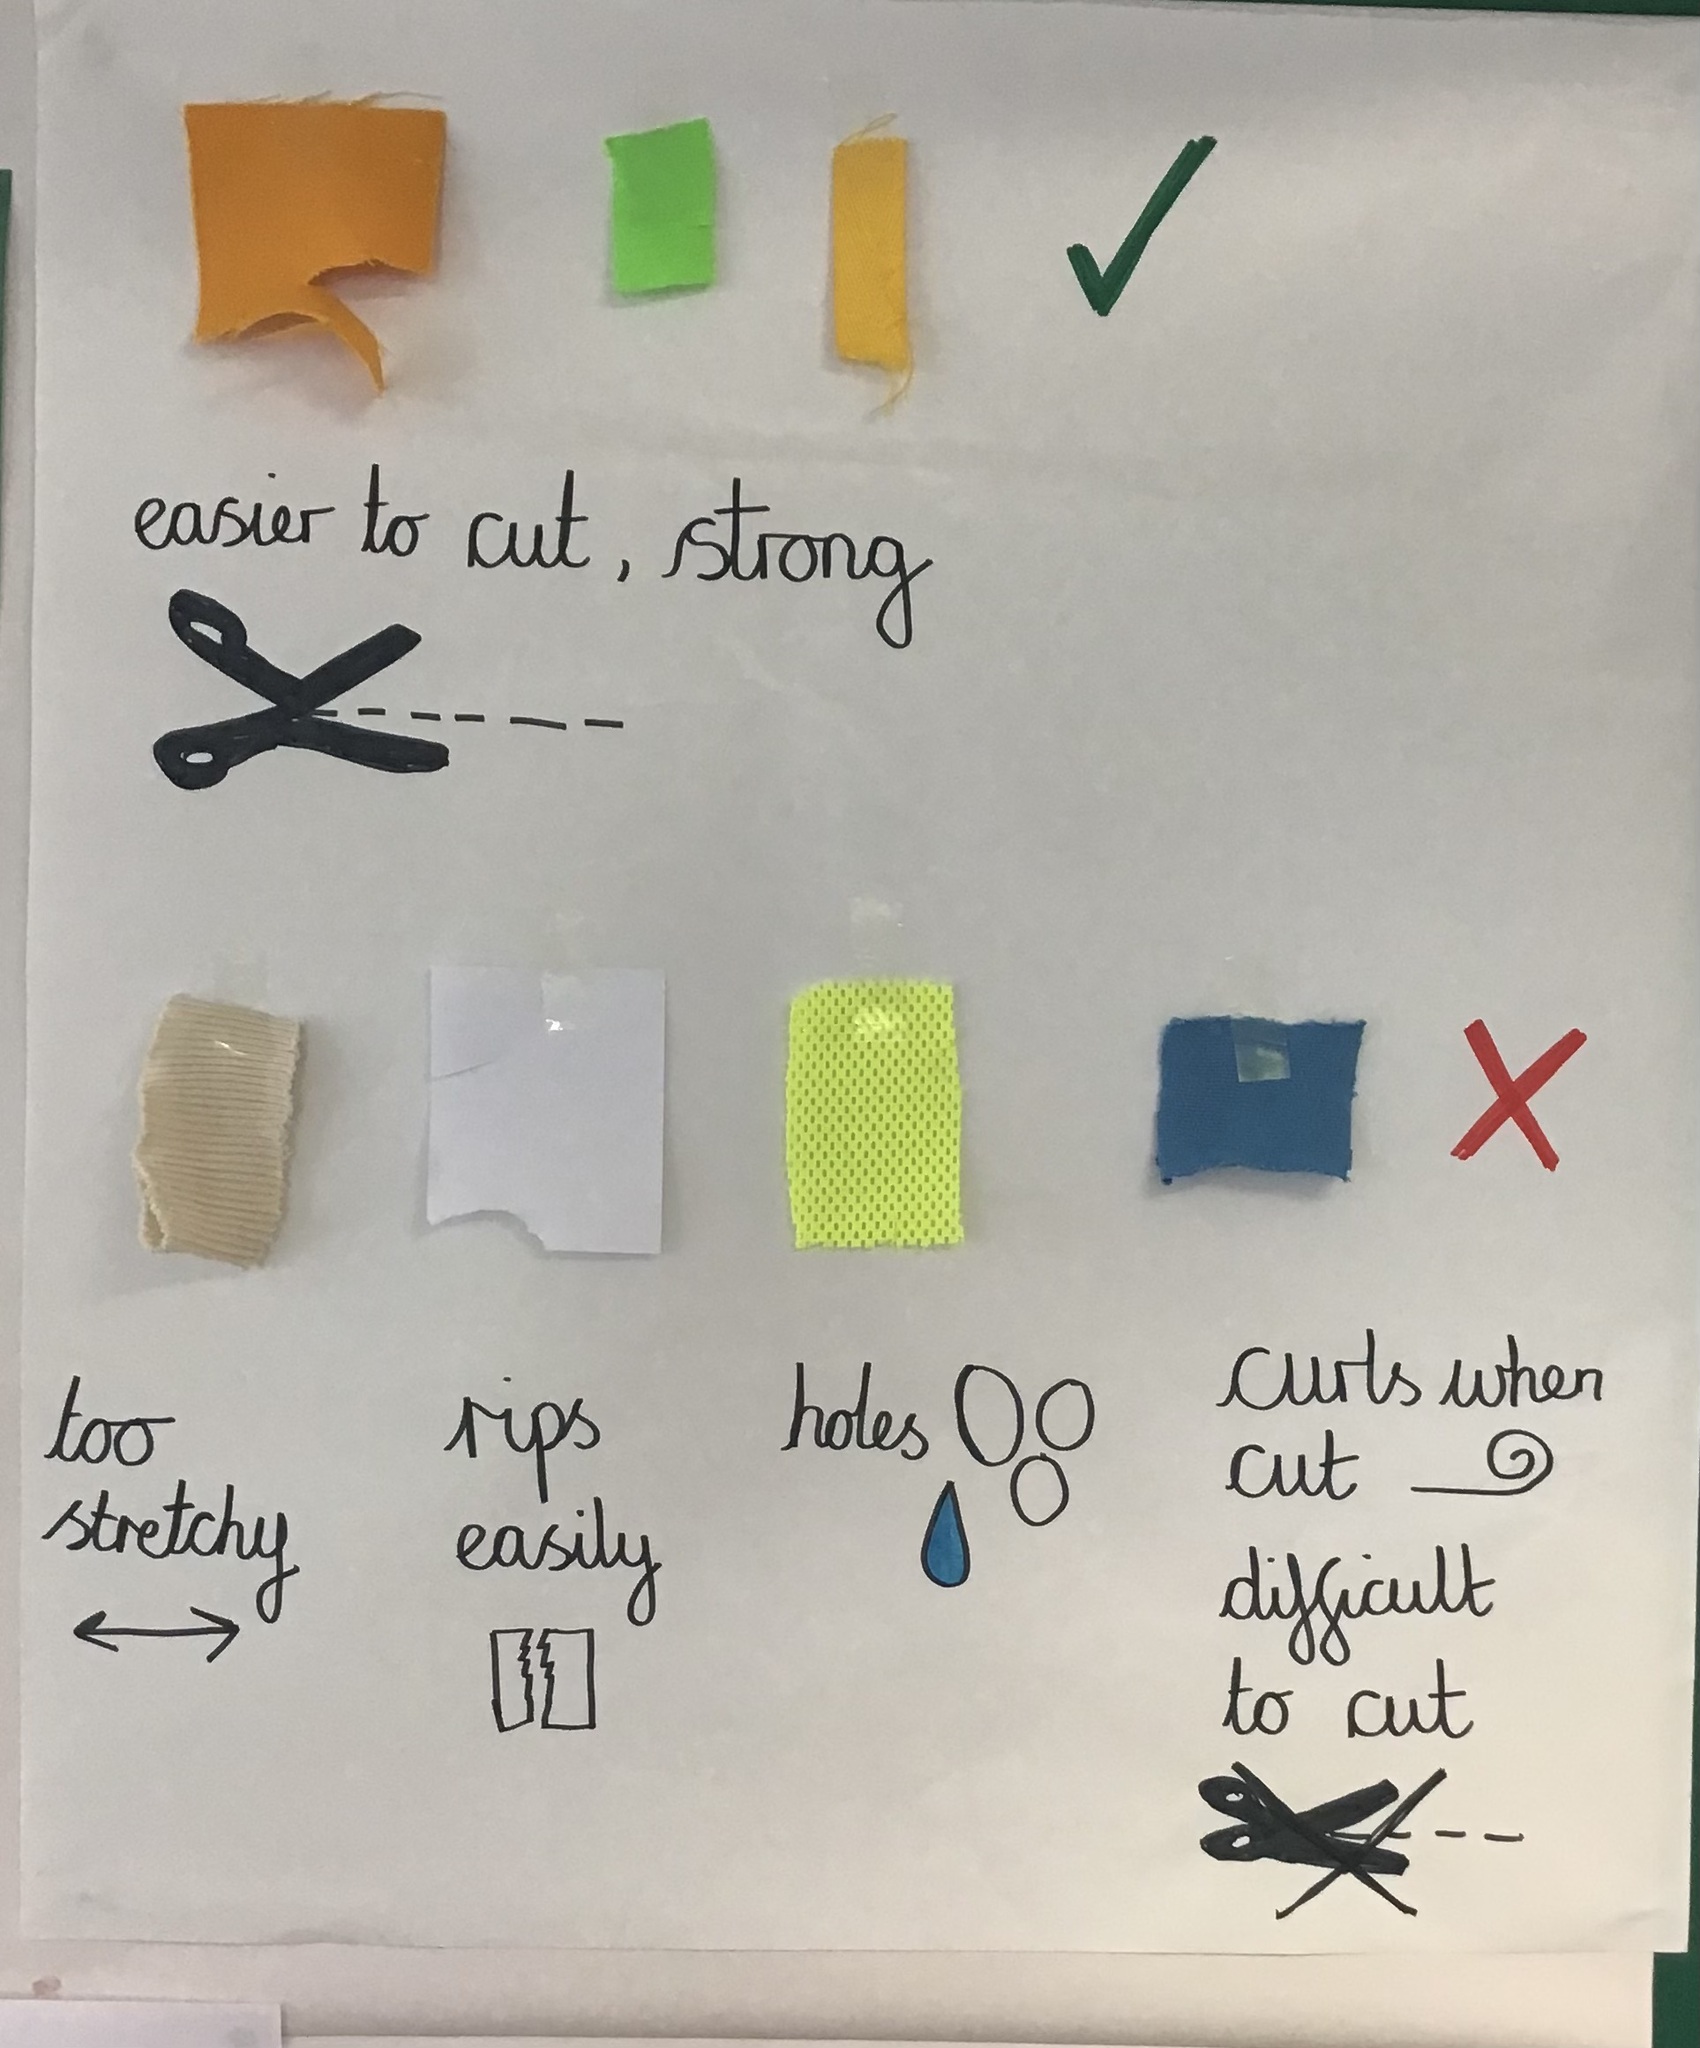 easier to cut, strong
too
stretchy
rips
easily
holes
curls when
cut
difficult
to cut